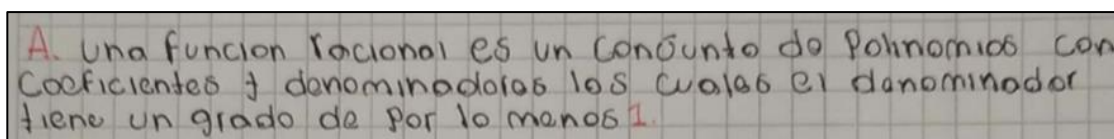 A. Una funcion racional es un conjunto de Polinomios con
Coeficientes y denominadoras los cuales el denominador
tiene un grado de por lo menos 1.